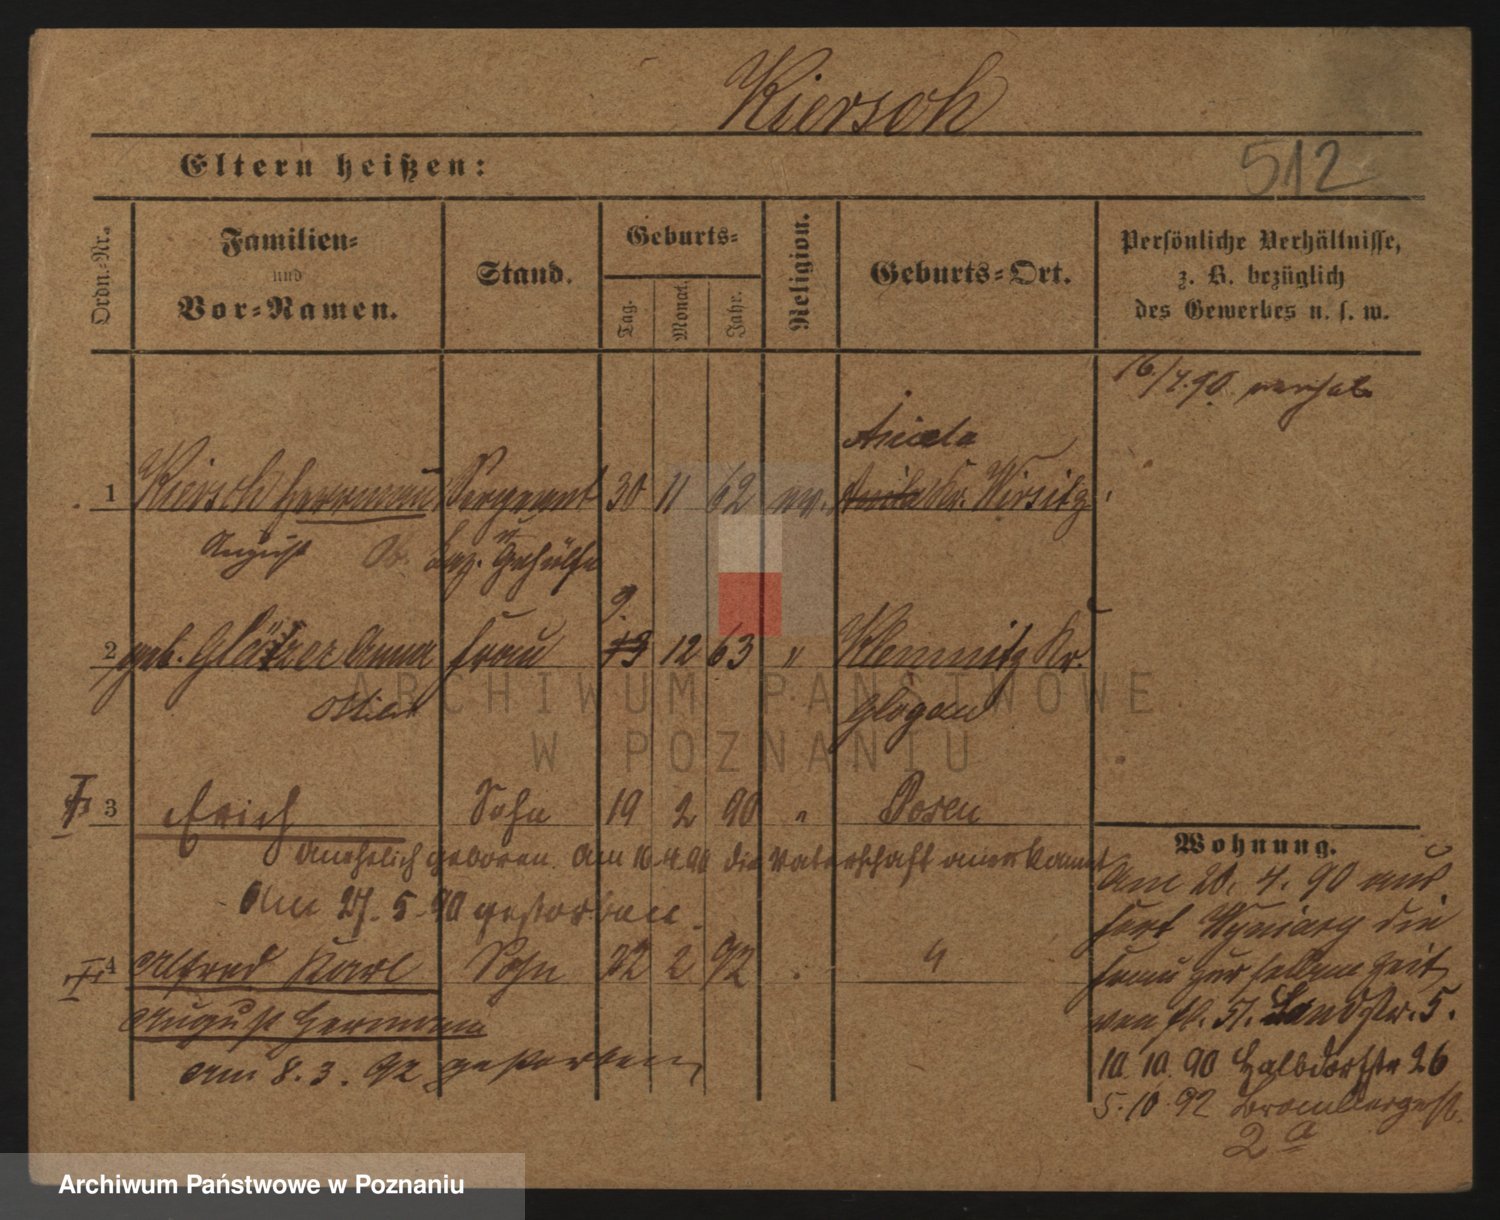 Kiersch
Eltern heißen:
512
Ordn.-Nr.
Familien-
und
Vor-Namen.
Stand.
Geburts-
Tag.
Monat.
Jahr.
Religion.
Geburts-Ort.
Persönliche Verhältnisse,
z. B. bezüglich
des Gewerbes u. s. w.
16/4.90
1 Kiersch Herrmann Sergeant 30 11 62 ev. Kr. Wirsitz
August Laz. Gehülfe
9.
2 geb. Anna Frau 13 12 63 " Klemnitz Kr.
Glogau
3 Erich Sohn 19 2 90 " Posen
unehelich geboren. Am die Vaterschaft anerkannt
Am 27. 5. 90 gestorben.
4 Alfred Karl Sohn 22 2 92
August Hermann
am 8. 3. 92 gestorben
Wohnung.
Am 20. 4. 90
die
Frau zur selben Zeit
von Landstr. 5.
10. 10. 90 Halbdorfstr 26
5. 10. 92 Brombergerst.
2a
ARCHIWUM PAŃSTWOWE
W POZNANIU
Archiwum Państwowe w Poznaniu